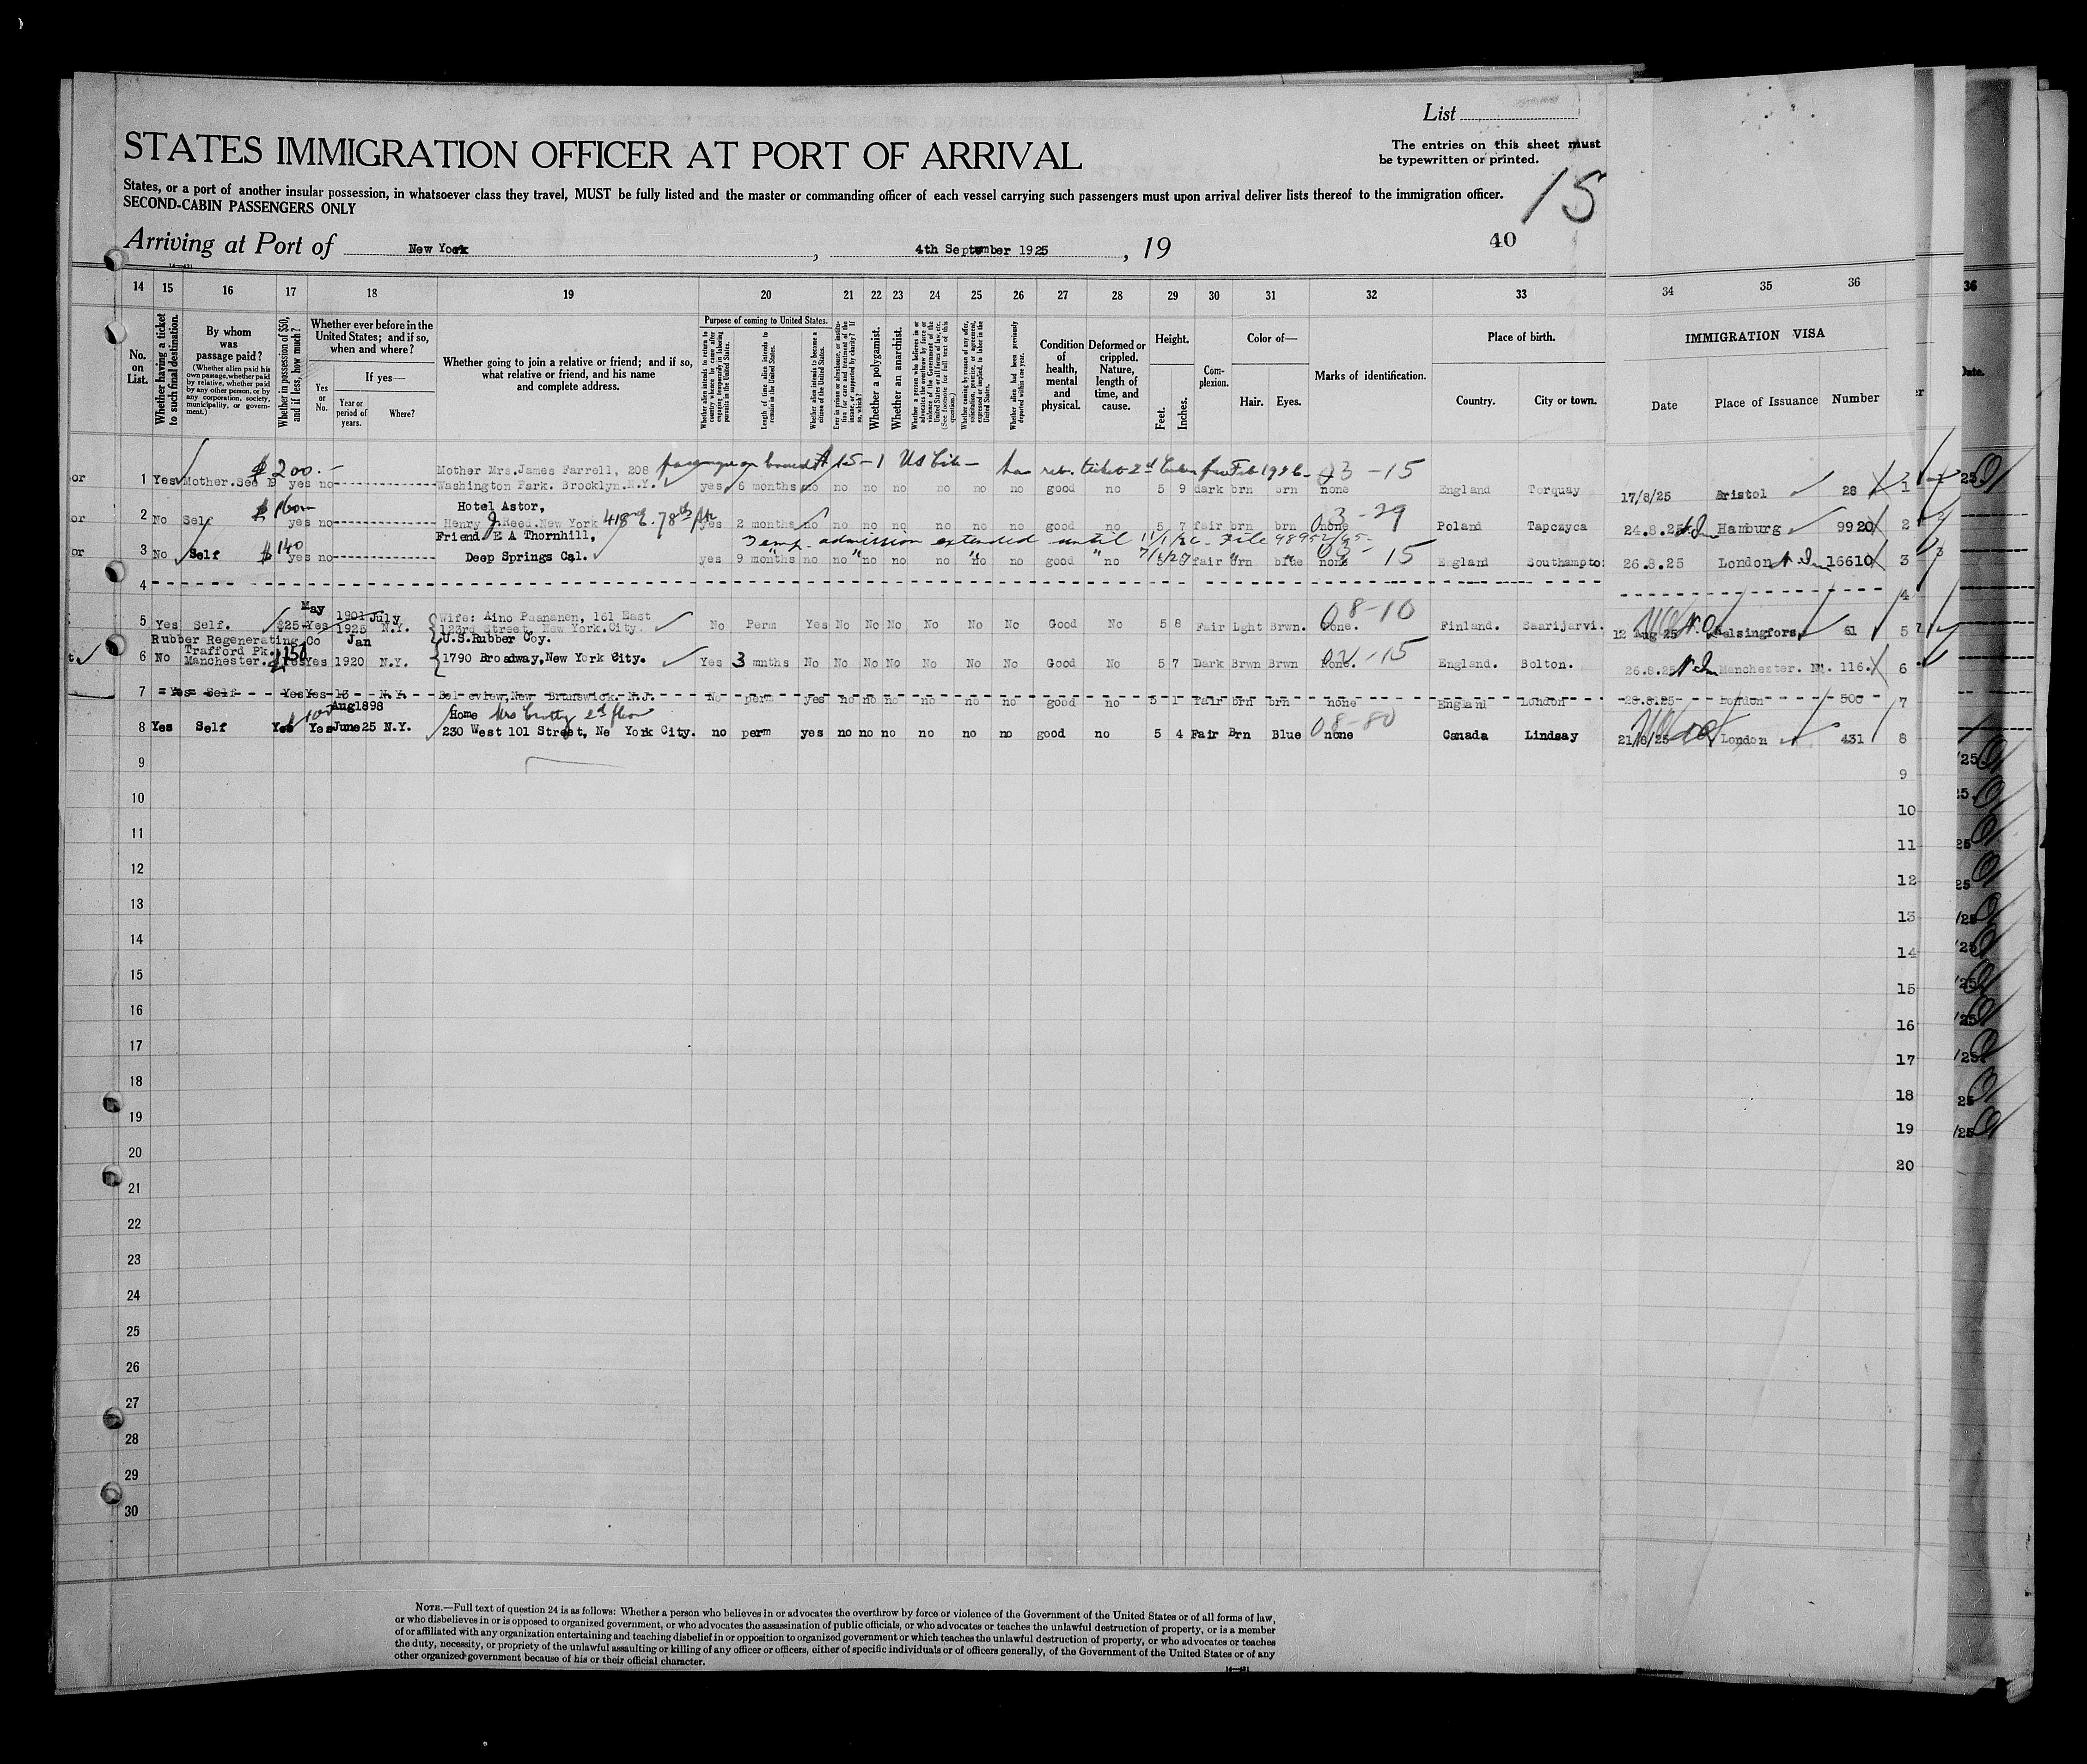 List
STATES IMMIGRATION OFFICER AT PORT OF ARRIVAL
The entries on this sheet must
be typewritten or printed.
States, or a port of another insular possession, in whatsoever class they travel, MUST be fully listed and the master or commanding officer of each vessel carrying such passengers must upon arrival deliver lists thereof to the immigration officer.
SECOND-CABIN PASSENGERS ONLY
15
Arriving at Port of New York, 4th September 1925, 19
40
14 15 16 17 18 19 20 21 22 23 24 25 26 27 28 29 30 31 32 33 34 35 36
36
No. on List.
Whether having a ticket to such final destination.
By whom was passage paid?
(Whether alien paid his own passage, whether paid by relative, whether paid by any other person, or by any corporation, society, municipality, or government.)
Whether in possession of $50, and if less, how much?
Whether ever before in the United States; and if so, when and where?
Yes or No.
If yes—
Year or period of years.
Where?
Whether going to join a relative or friend; and if so, what relative or friend, and his name and complete address.
Purpose of coming to United States.
Whether alien intends to return to country whence he came after engaging temporarily in laboring pursuits in the United States.
Length of time alien intends to remain in the United States.
Whether alien intends to become a citizen of the United States.
Ever in prison or almshouse, or institution for care and treatment of the insane, or supported by charity? If so, which?
Whether a polygamist.
Whether an anarchist.
Whether a person who believes in or advocates the overthrow by force or violence of the Government of the United States or all forms of law, etc. (See footnote for full text of this question.)
Whether coming by reason of any offer, solicitation, promise, or agreement, expressed or implied, to labor in the United States.
Whether alien had been previously deported within one year.
Condition of health, mental and physical.
Deformed or crippled. Nature, length of time, and cause.
Height.
Feet.
Inches.
Complexion.
Color of—
Hair.
Eyes.
Marks of identification.
Place of birth.
Country.
City or town.
IMMIGRATION VISA
Date
Place of Issuance
Number
Date.
$200.— Mother Mrs.James Farrell, 208 15-1 US Cit— has ret. ticket 2d Feb 1926— 03-15
or 1 Yes Mother. yes no Washington Park. Brooklyn.N.Y. yes 6 months no no no no no no no good no 5 9 dark brn brn none England Torquay 17/8/25 Bristol 28 1
Hotel Astor,
or 2 No Self yes no Henry J.Reed.New York 418 E. 78th yes 2 months no no no no no no no good no 5 7 fair brn brn none 03-29 Poland Tapczyca 24.8.25 Hamburg 9920 2
Friend E A Thornhill, Temp. admission extended until 11/1/26 - File 98952/65-
or 3 No Self $140 yes no Deep Springs Cal. yes 9 months no no no no no no no good no fair brn blue none 03-15 England Southampto 26.8.25 London 16610 3
4 4
May 1901 July Wife: Aino Pasnanen, 161 East 08-10
5 Yes Self. $25 Yes 1925 N.Y. 123rd Street. New York.City. No Perm Yes No No No No No No Good No 5 8 Fair Lght Brwn. None. Finland. Saarijarvi. 12 Aug 25 Helsingfors 61 5
Rubber Regenerating Co Jan U.S.Rubber Coy.
6 No Trafford Pk. Manchester. $150 Yes Yes 1920 N.Y. 1790 Broadway,New York City. Yes 3 mnths No No No No No No No Good No 5 7 Dark Brwn Brwn None. 02-15 England. Bolton. 26.8.25 Manchester. 116. 6
7 Yes Self Yes Yes 13 N.Y. New Brunswick. N.J. No perm yes no no no no no no good no 5 1 fair brn brn none England London 28.8.25 London 500 7
Aug1898 Home Mrs Crotty 2d floor 08-80
8 Yes Self Yes 100 Yes June25 N.Y. 230 West 101 Street, Ne York City. no perm yes no no no no no no good no 5 4 Fair Brn Blue none Canada Lindsay 21/8/25 London 431 8
9 9
10 10
11 11
12 12
13 13
14 14
15 15
16 16
17 17
18 18
19 19
20 20
21
22
23
24
25
26
27
28
29
30
NOTE.—Full text of question 24 is as follows: Whether a person who believes in or advocates the overthrow by force or violence of the Government of the United States or of all forms of law,
or who disbelieves in or is opposed to organized government, or who advocates the assassination of public officials, or who advocates or teaches the unlawful destruction of property, or is a member
of or affiliated with any organization entertaining and teaching disbelief in or opposition to organized government or which teaches the unlawful destruction of property, or who advocates or teaches
the duty, necessity, or propriety of the unlawful assaulting or killing of any officer or officers, either of specific individuals or of officers generally, of the Government of the United States or of any
other organized government because of his or their official character.
14—431